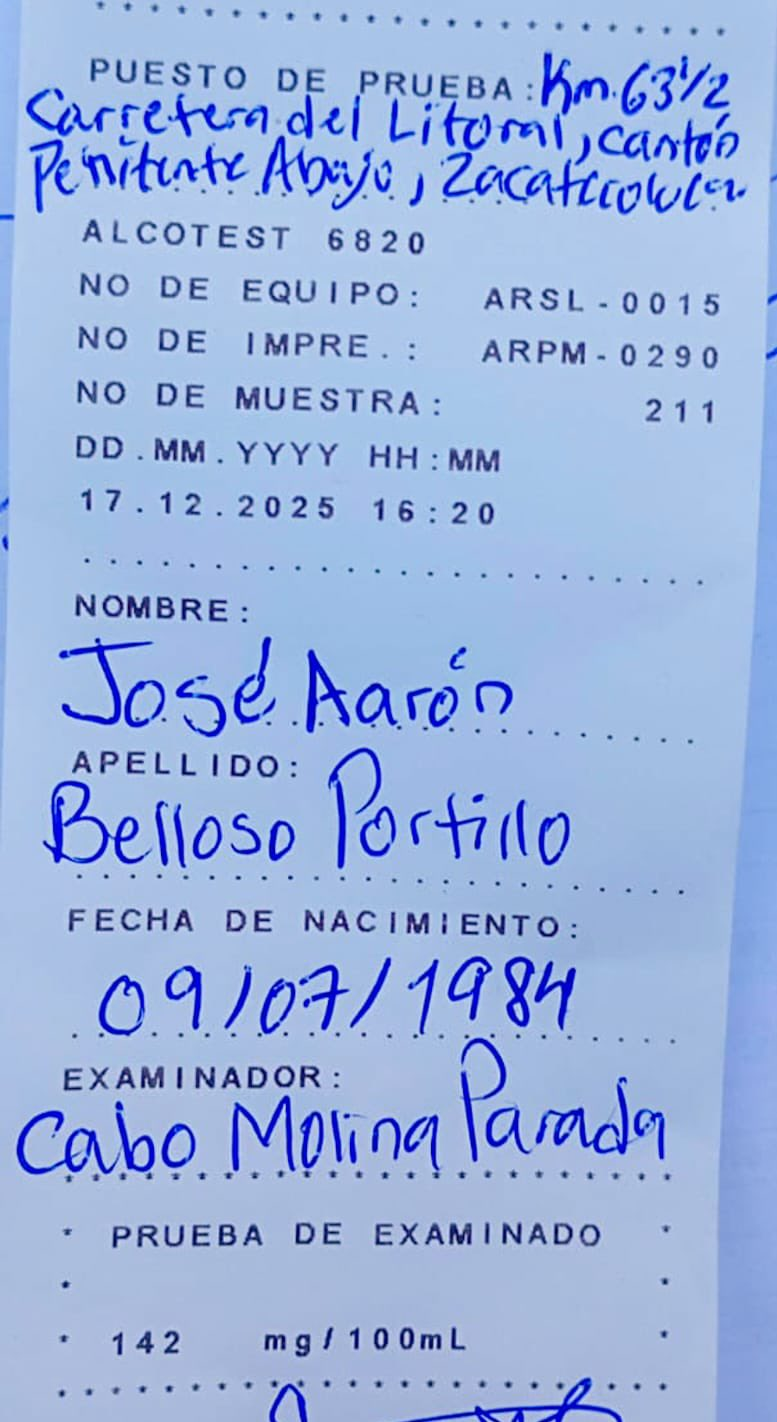 PUESTO DE PRUEBA: Km. 63 1/2
Carretera del Litoral, cantón
Penitente Abajo, Zacatecoluca
ALCOTEST 6820
NO DE EQUIPO: ARSL-0015
NO DE IMPRE.: ARPM-0290
NO DE MUESTRA: 211
DD.MM.YYYY HH:MM
17.12.2025 16:20
NOMBRE:
José Aarón
APELLIDO:
Belloso Portillo
FECHA DE NACIMIENTO:
09/07/1984
EXAMINADOR:
Cabo Molina Parada
* PRUEBA DE EXAMINADO *
* *
* 142 mg/100mL *